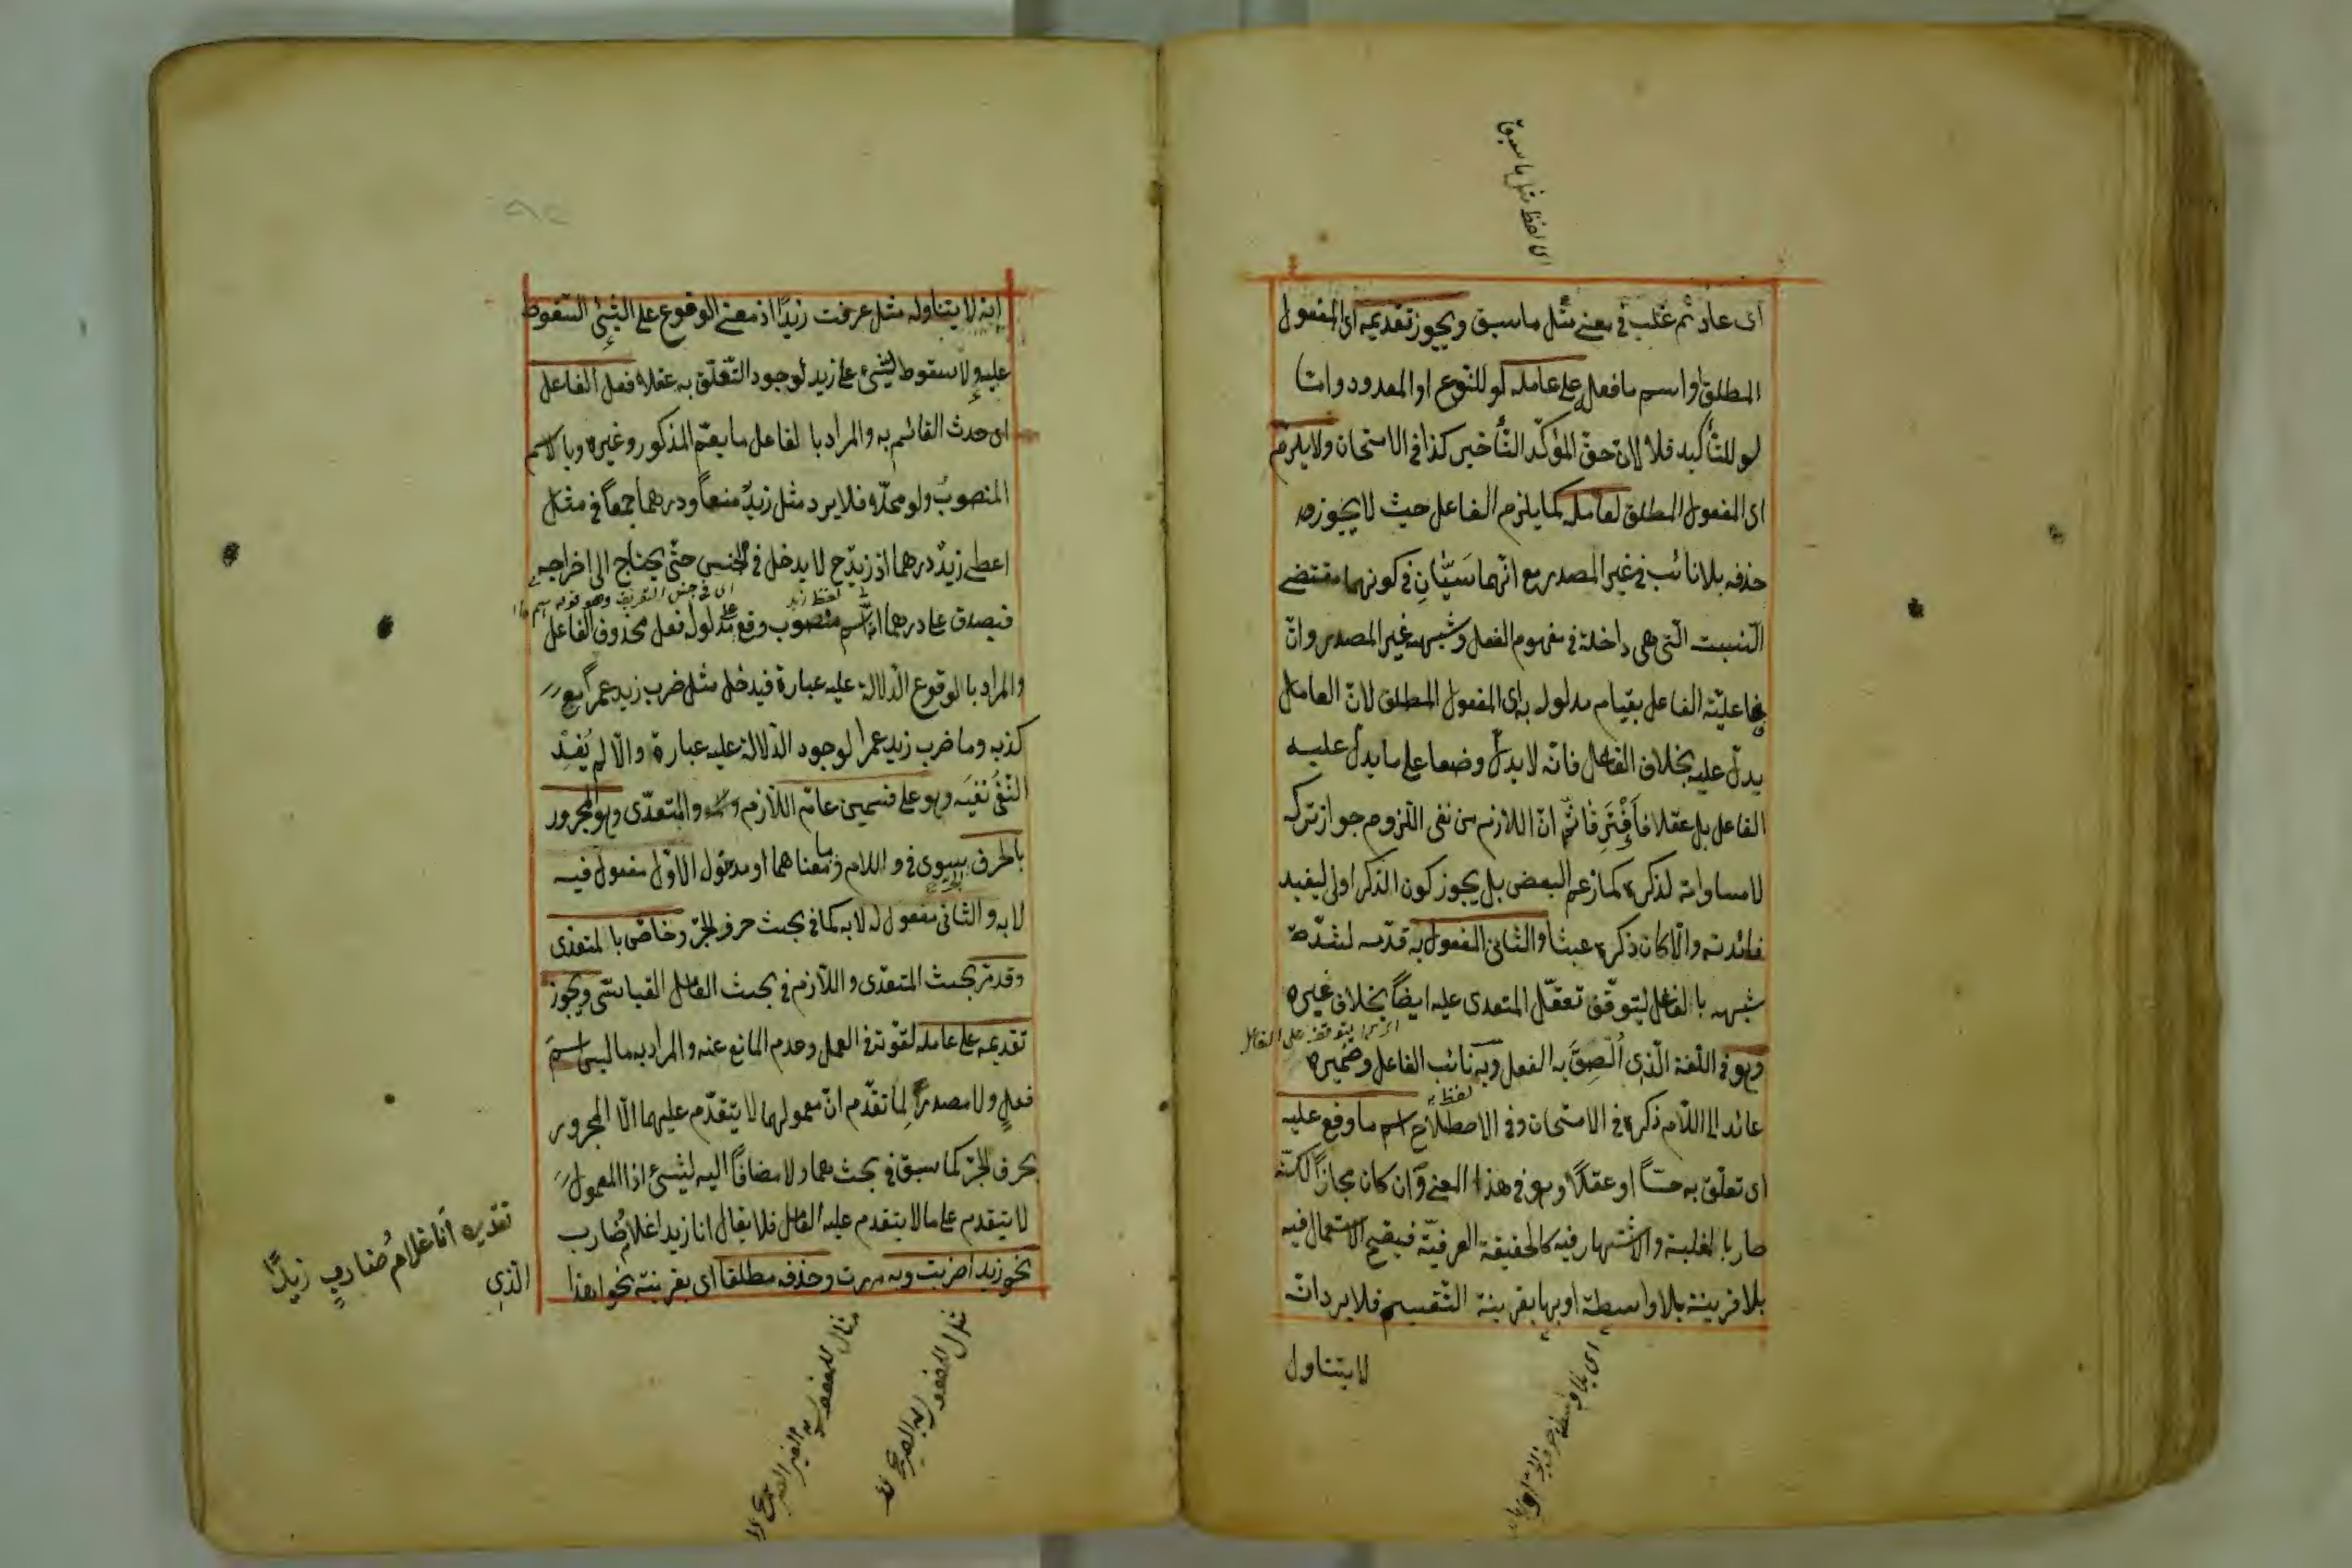 اى لفظ مثل ما سبق
اى عاد ثم غلب فى معنى مثل ما سبق ويجوز تقديمه اى المفعول
المطلق او اسم ما فعل على عامله لو للنوع او المعدود واما
لو للتأكيد فلا لان حق المؤكد التأخير كذا فى الامتحان ولا يلزم
اى المفعول المطلق لعامله كما يلزم الفاعل حيث لا يجوز
حذفه بلا نائب فى غير المصدر مع انهما سيّان فى كونهما مقتضى
النسبت التى هى داخلة فى مفهوم الفعل وشبهه غير المصدر وانّ
فاعليّة الفاعل بقيام مدلوله به اى المفعول المطلق لانّ العامل
يدلّ عليه بخلاف الفاعل فانّه لا يدلّ وضعا على ما يدلّ عليه
الفاعل بل عقلا فافترقا ثم انّ اللازم من نفى اللزوم جواز تركه
لا مساواته لذكره كما زعم البعض بل يجوز كون الذكر اولى ليفيد
فائدته والّا كان ذكره عبثا والثانى المفعول به قدّمه لشدّة
شبهه بالفاعل ليتوقّف تعقّل المتعدى عليه ايضاً بخلاف غيره
يتوقف على الفاعل
وهو فى اللغة الّذى اُلْصِقَ به الفعل وبه نائب الفاعل وضميره
لفظ به
عائد الى اللّام ذكره فى الامتحان وفى الاصطلاح اسم ما وقع عليه
اى تعلّق به حسّاً او عقلاً وهو فى هذا المعنى وان كان مجازاً لكنّه
صار بالغلبة والاشتهار فيه كالحقيقة العرفيّة فيصح الاستعمال فيه
بلا قرينة بلا واسطة او بها بقرينة التقسيم فلا يرد انّه
لا يتناول
اى بلا واسطة حرف الجر
انه لا يتناوله مثل عرفت زيدًا اذ معنى الوقوع على الشئ السّقوط
عليه ولا سقوط لشئ على زيد لوجود التّعلّق به عقلا فعل الفاعل
اى حدث القائم به والمراد بالفاعل ما يعمّ المذكور وغيره وبالاسم
المنصوب ولو محلّا فلا يرد مثل زيدٌ منعاً ودرهماً جمعاً فى مثل
اعطى زيدٌ درهما اذ زيدٌ ح لا يدخل فى الجنس حتّى يحتاج الى اخراجه
اى فى جنس التعريف وهو قوله اسم ما
لفظ زيد
فيصدق على درهما انه اسم منصوب وقع على مدلوله فعل محذوف الفاعل
والمراد بالوقوع الدّلالة عليه عبارة فيدخل مثل ضرب زيد عمراً مع
كذبه وما ضرب زيد عمرا لوجود الدّلالة عليه عبارة والّا لم يُفِدْ
النّفى نفيَه وهو على قسمين عامّ اللّازم والمتعدّى وهو المجرور
بالحرف سوى فى واللام وما بمعناهما او مدخول الاوّل مفعول فيه
لا به والثانى مفعول له لا به كما فى بحث حرف الجرّ وخاصّ بالمتعدى
وقد مرّ بحث المتعدّى واللّازم فى بحث العامل القياسىّ ويجوز
تقديمه على عامله لقوّته فى العمل وعدم المانع عنه والمراد به ما ليس اسم
فعل ولا مصدراً لِما تقدّم انّ معمولهما لا يتقدّم عليهما الّا المجرور
بحرف الجرّ كما سبق فى بحثهما ولا مضافاً اليه لشئ اذ المعمول
لا يتقدم على ما لا يتقدم عليه العامل فلا يقال انا زيدا غلام ضارب
نحو زيدا ضربت وبه مررت وحذفه مطلقا اى بقرينة نحو اهذا
الّذى
تقديره أنا غلام ضاربٍ زيدًا
مثال المفعول به الصريح
مثال للمفعول به الغير الصريح